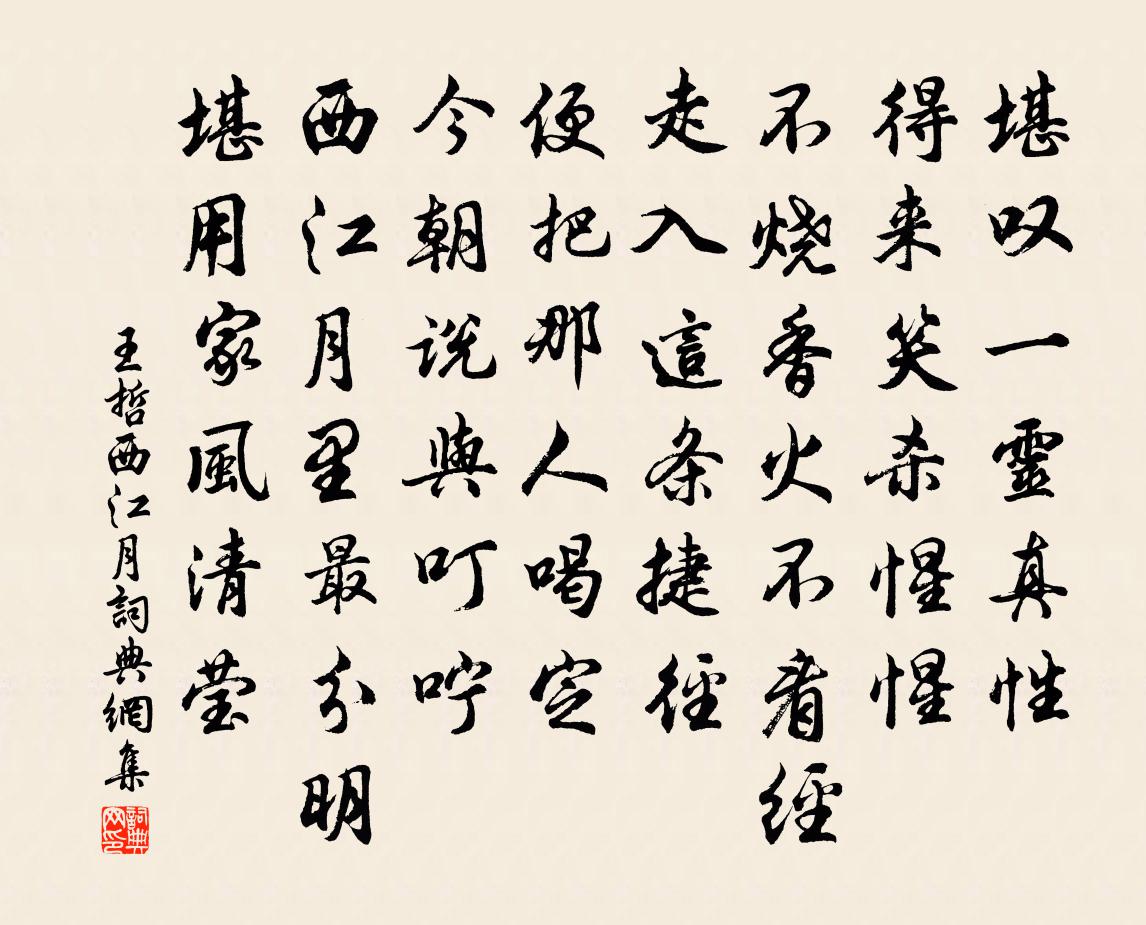 堪叹一靈真性
得来笑杀惺惺
不烧香火不看經
走入這条捷徑
便把那人喝定
今朝说與叮咛
西江月里最分明
堪用家風清莹
王哲西江月詞典網集
詞典网印